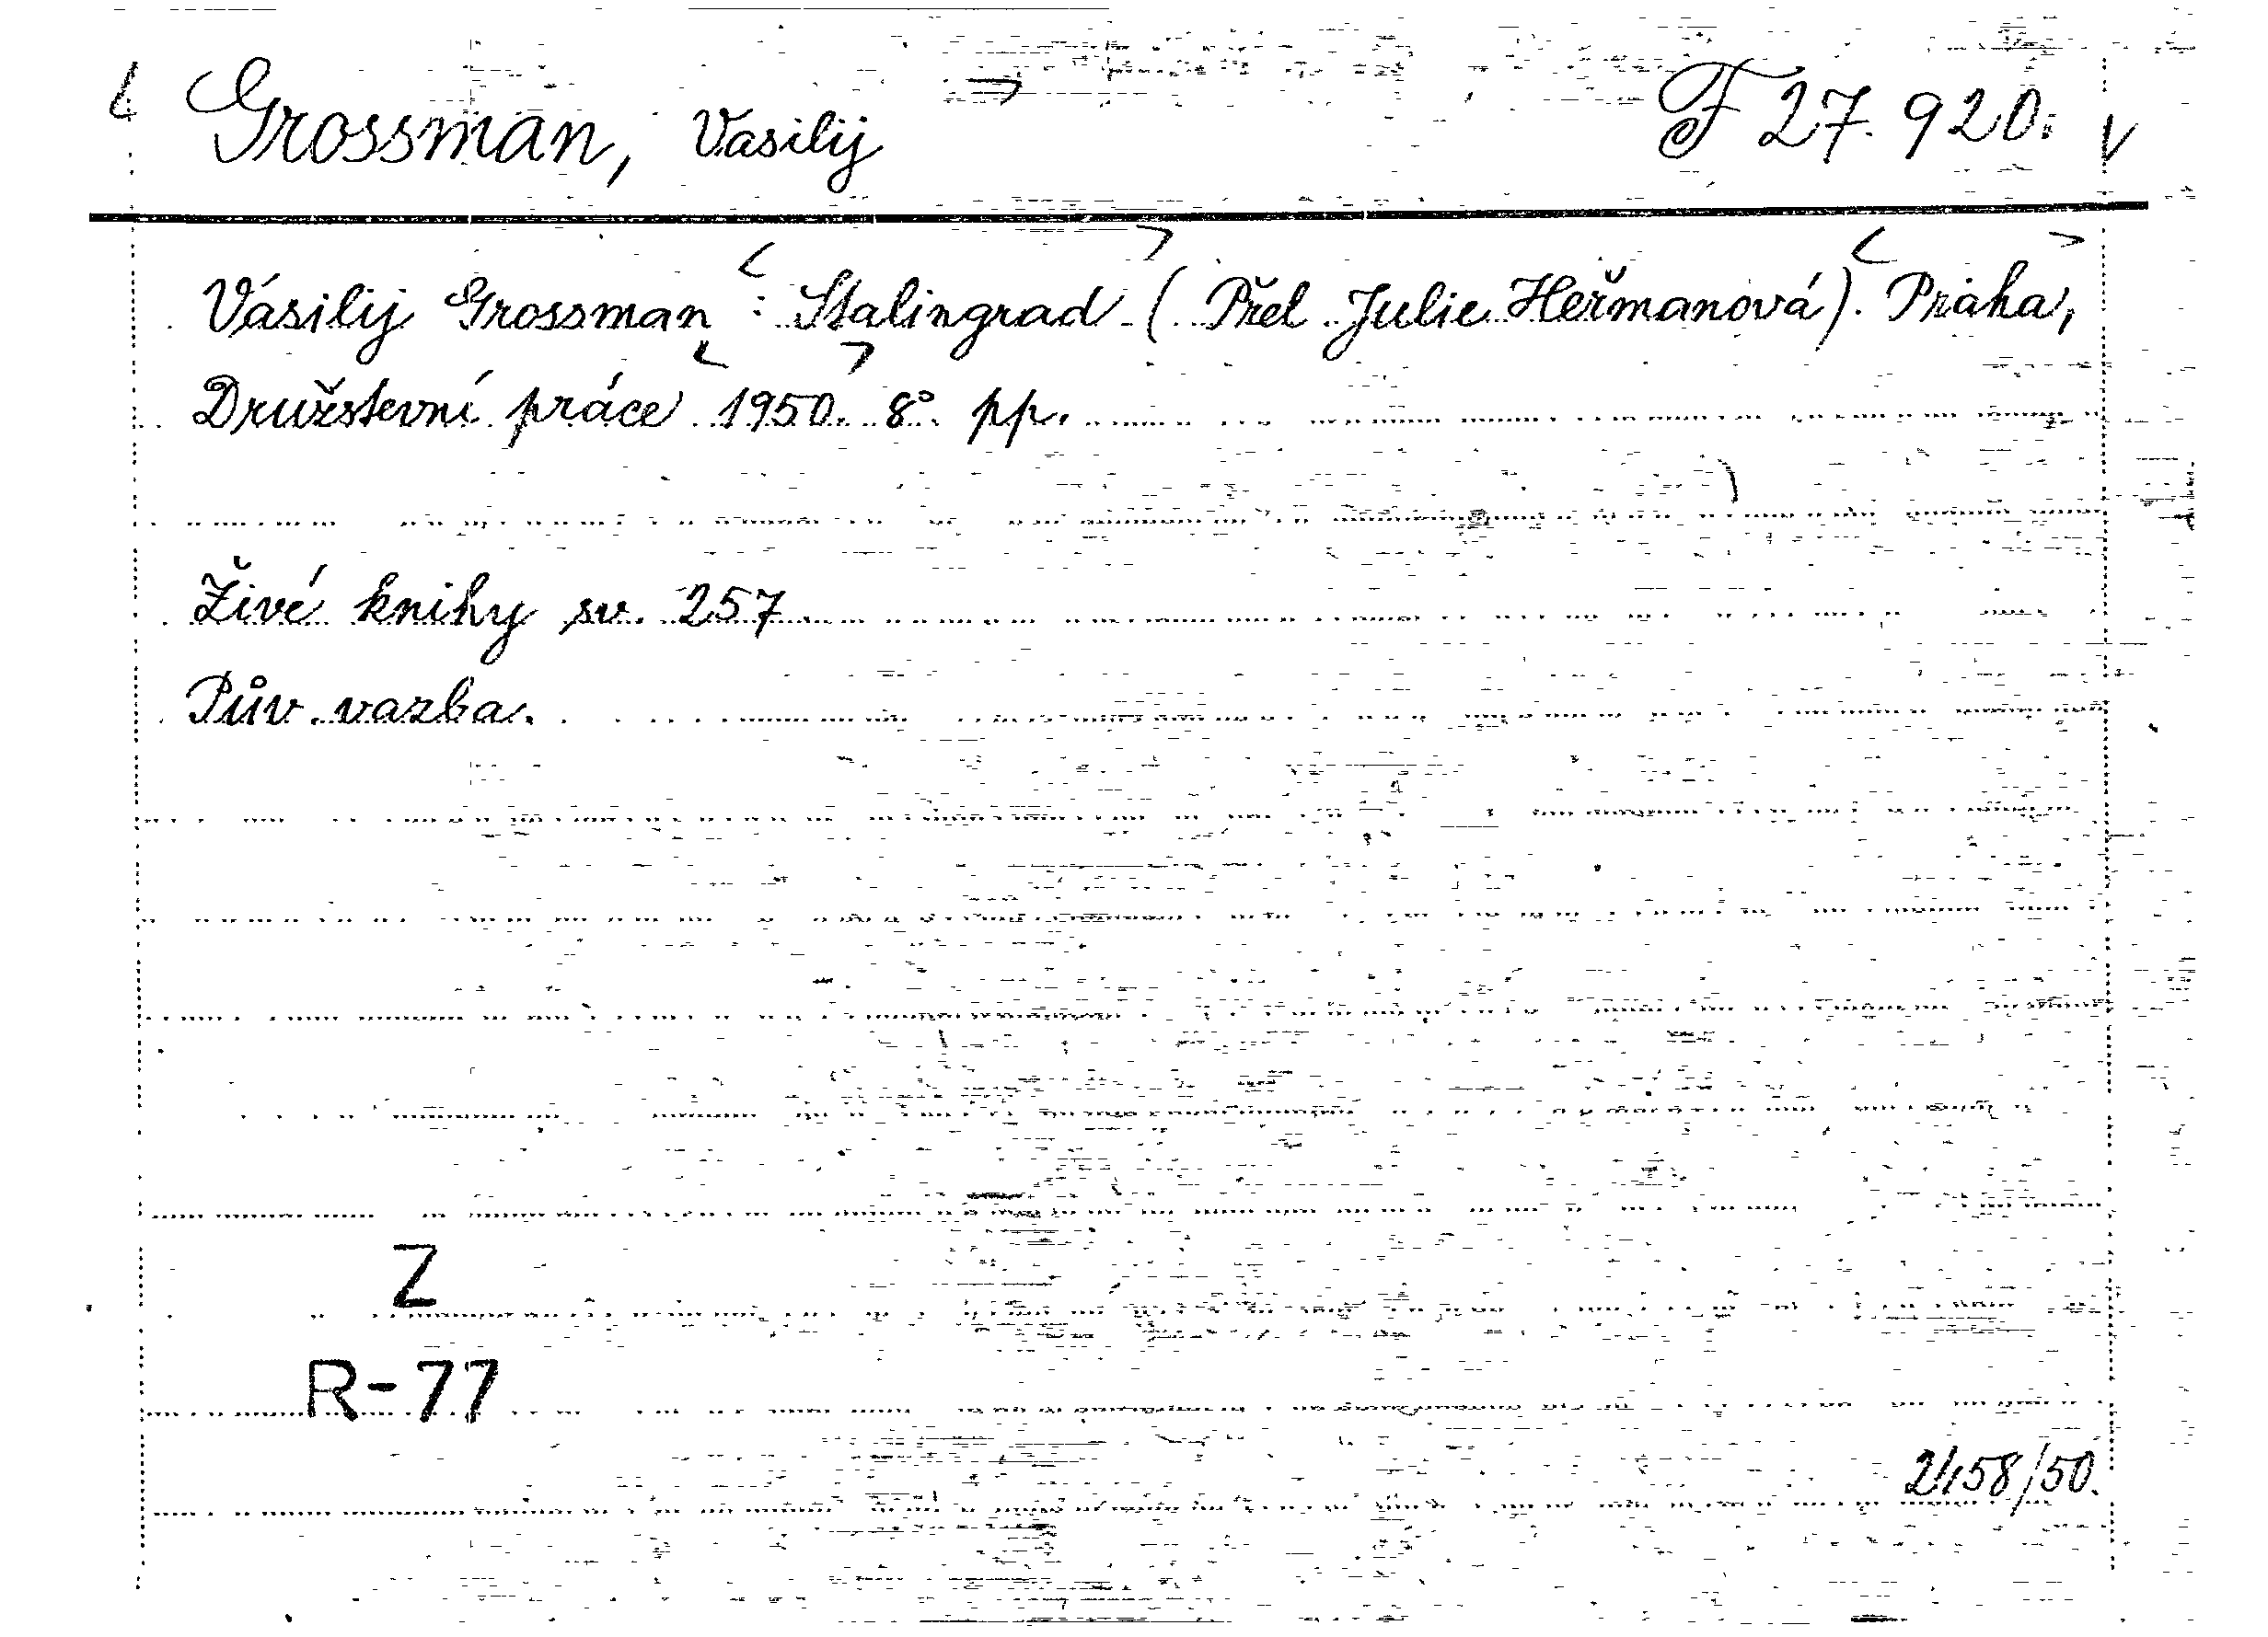 Grossman, Vasilij F 27.920.
Vasilij Grossman: Stalingrad (Přel Julie Heřmanová). Praha,
Družstevní práce 1950. 8° pp.
Živé knihy sv. 257
Pův. vazba.
Z
R-77
2458/50.